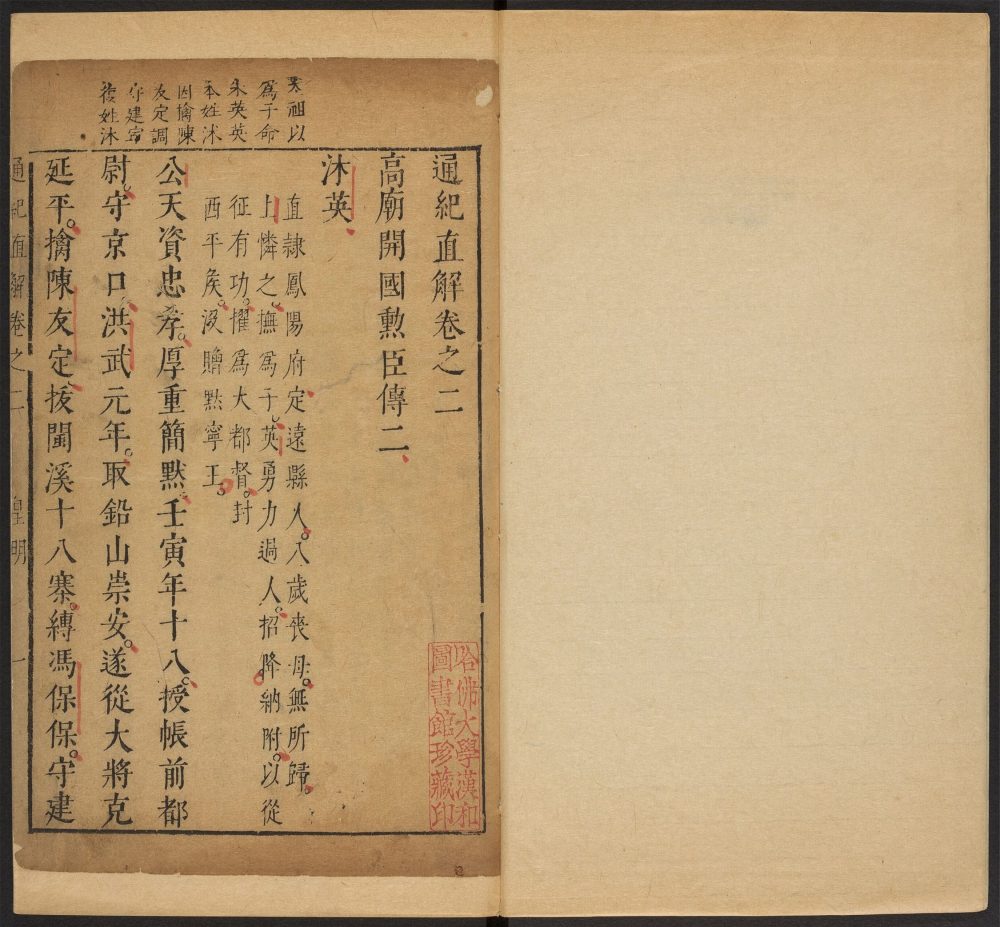 通紀直解卷之二
高廟開國勲臣傳二
沐英
直隸鳳陽府定遠縣人八歲喪母無所歸
上憐之撫爲子英勇力過人招降納附以從
征有功擢爲大都督封
西平矦沒贈黙寧王
公天資忠孝厚重簡黙壬寅年十八授帳前都
尉守京口洪武元年取鉛山崇安遂從大將克
延平擒陳友定拔閩溪十八寨縛馮保保守建
祖以
爲子命
朱英英
本姓沭
因擒陳
友定調
守建寧
復姓沐
通紀直解卷之二 皇明 一
哈佛大學漢和
圖書館珍藏印